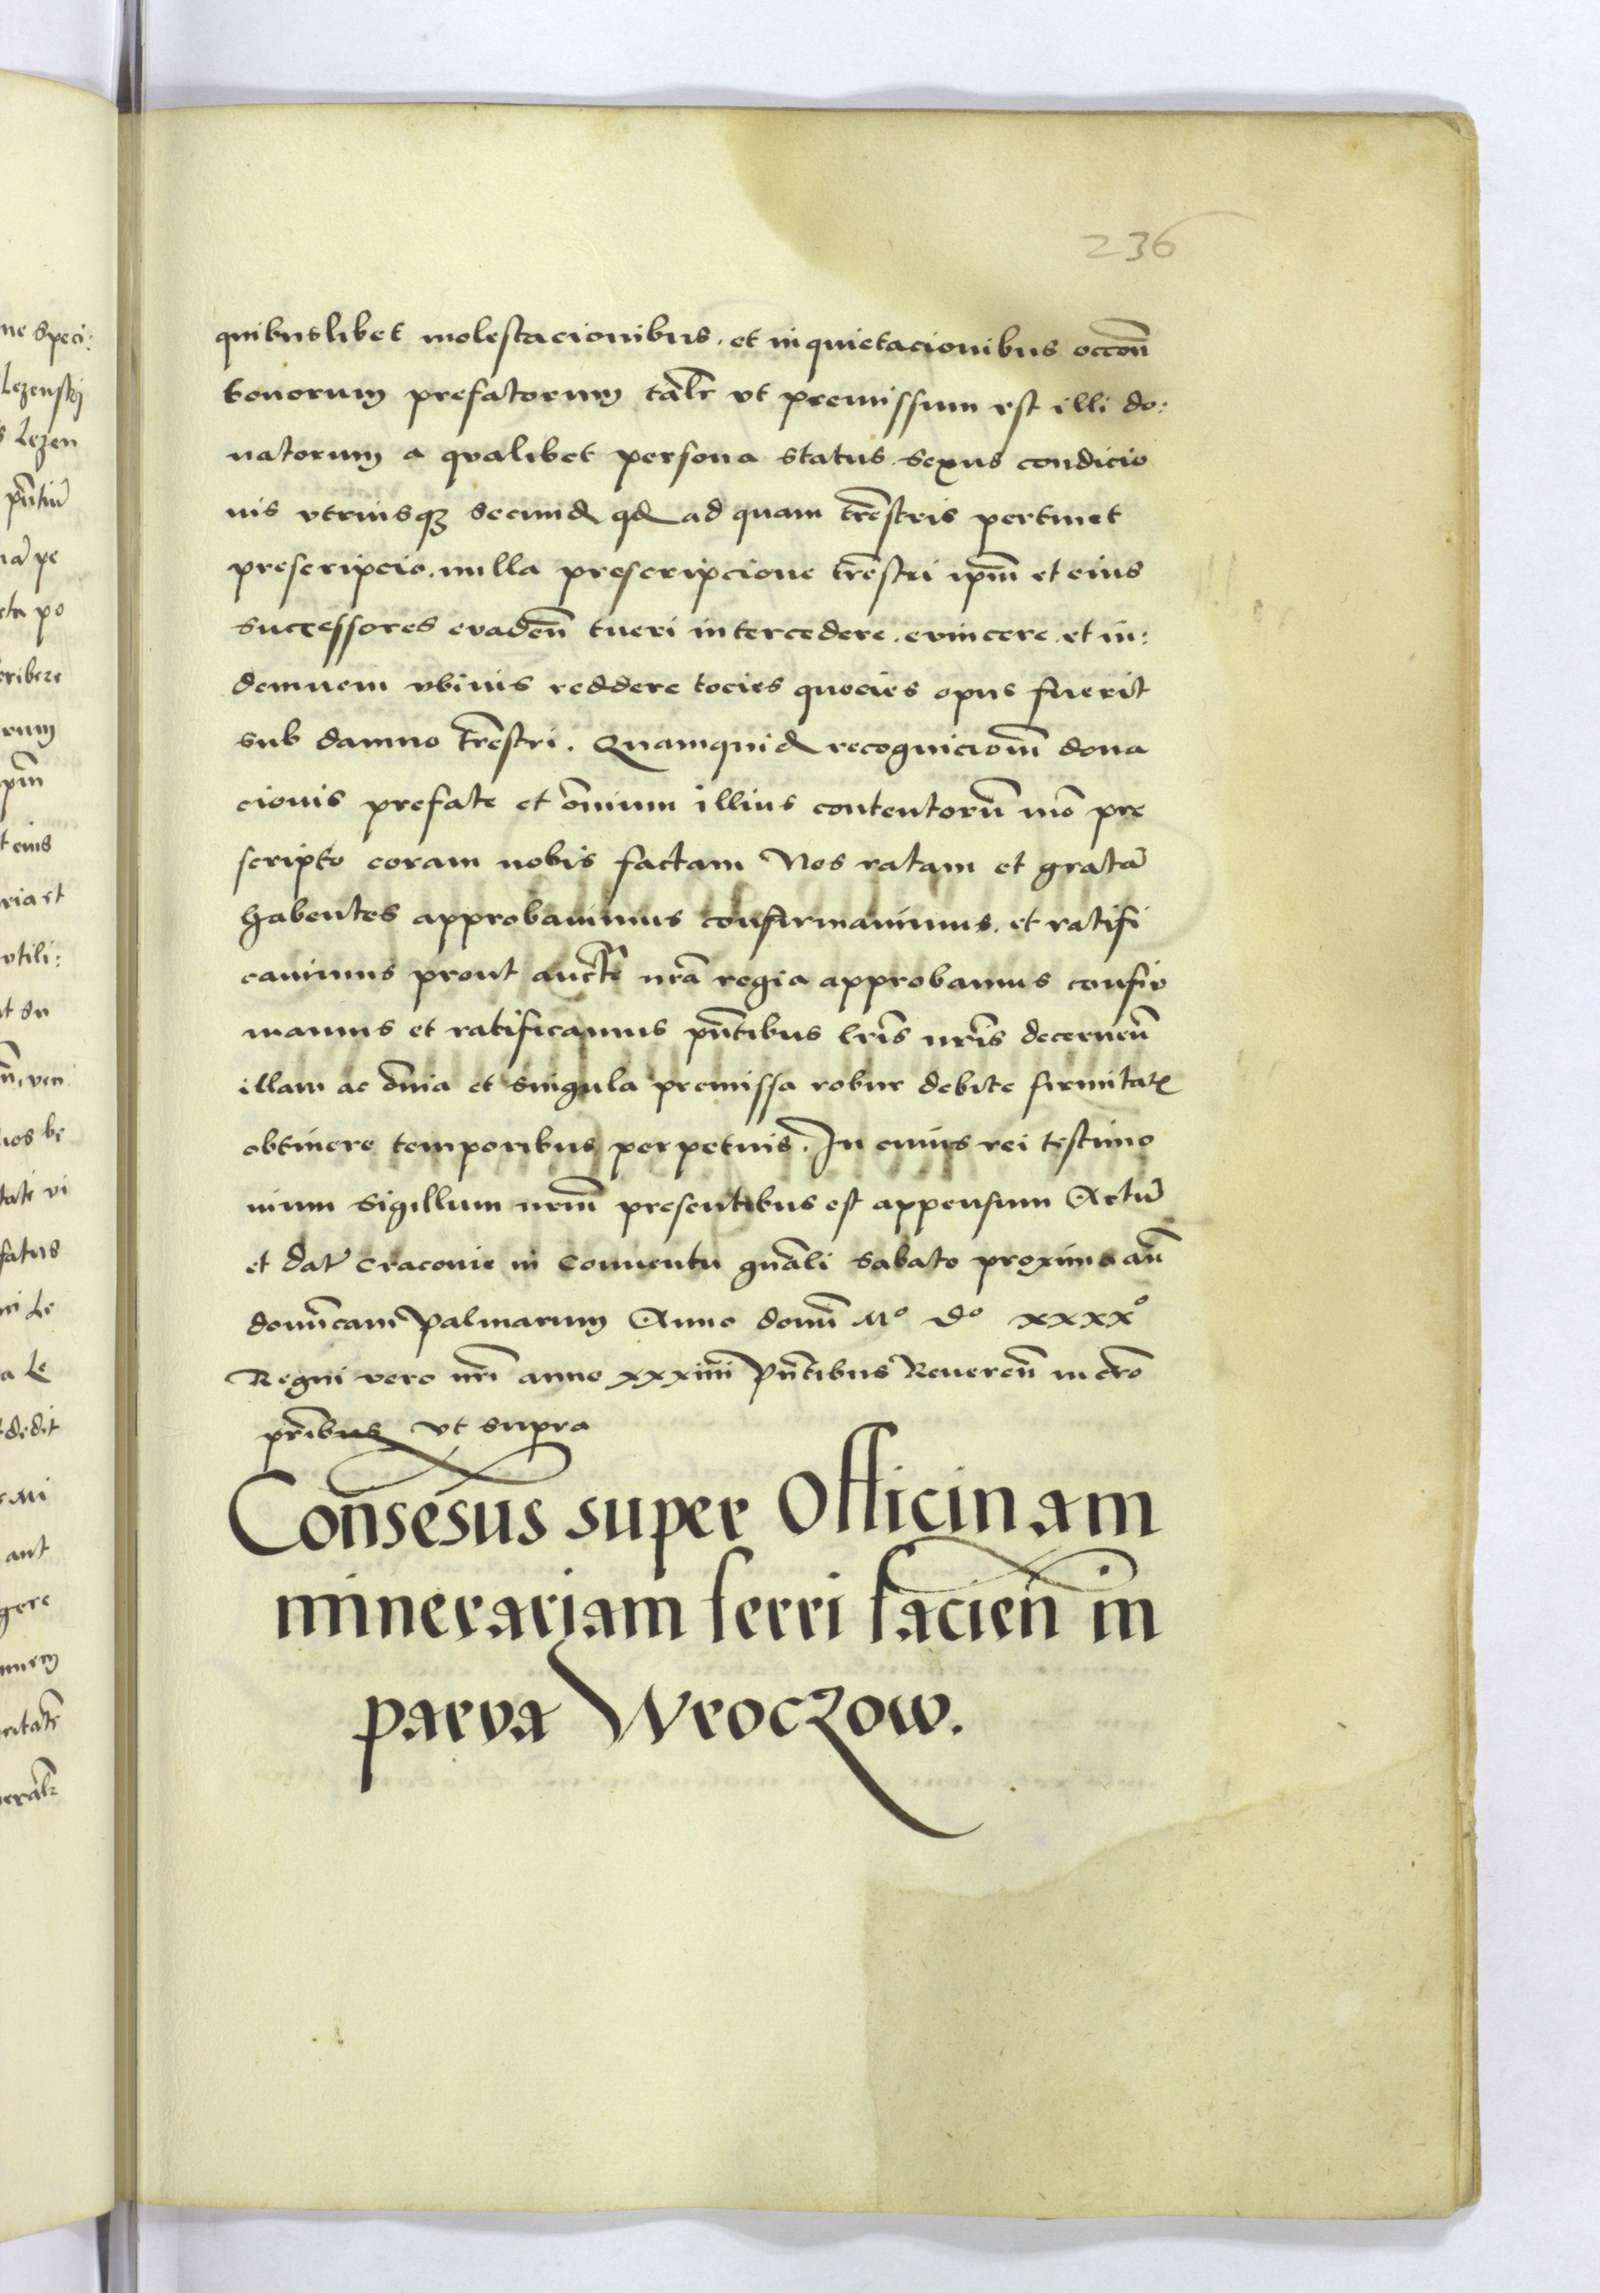 236
quibuslibet molestacionibus. et inquietacionibus occōn
bonorum prefatorum tālr vt premissum est illi do:
natorum a qualibet persona status sexus condicio
nis vtriusqз secund qd ad quam trēstris pertinet
prescripcio. nulla prescripcione trēstri ipm̄ et eius
successores evadeñ tueri intercedere. evincere. et in:
demnem vbiuis reddere tocies quocies opus fuerit
sub damno trēstri. Quamquid recognicionē dona
cionis prefate et om̄ium illius contentorū mō pre
scripto coram nobis factam Nos ratam et gratā
habentes approbauimus confirmauimus. et ratifi
cauimus prout auctē nrā regia approbamus confir
mamus et ratificamus pn̄tibus lrīs nrīs decerneñ
illam ac om̄ia et singula premissa robur debite firmitatꝭ
obtinere temporibus perpetuis. In cuius rei testimo
nium sigillum nrm̄ presentibus est appensum Actū
et datꝰ Cracouie in Conuentu gnāli Sabato proximo añ
domīcam Palmarum Anno domī Mº Dº xxxxº
Regni vero nrī anno xxxiiii Pn̄tibus Reuereñ in cro
prībus vt supra
Consesus super Officinam
minerariam ferri facieñ in
parva Wroczow.
ne speci:
Lezenskj
s Lezen
pn̄tiū
nā pe
eta po
cribere
rum
pm̄
t eius
ria et
vtili:
t su
ven
nos be
tate vi
fatus
ni Le
a Le
dedit
Mi
ant
gere
nnem
eritatē
erālr